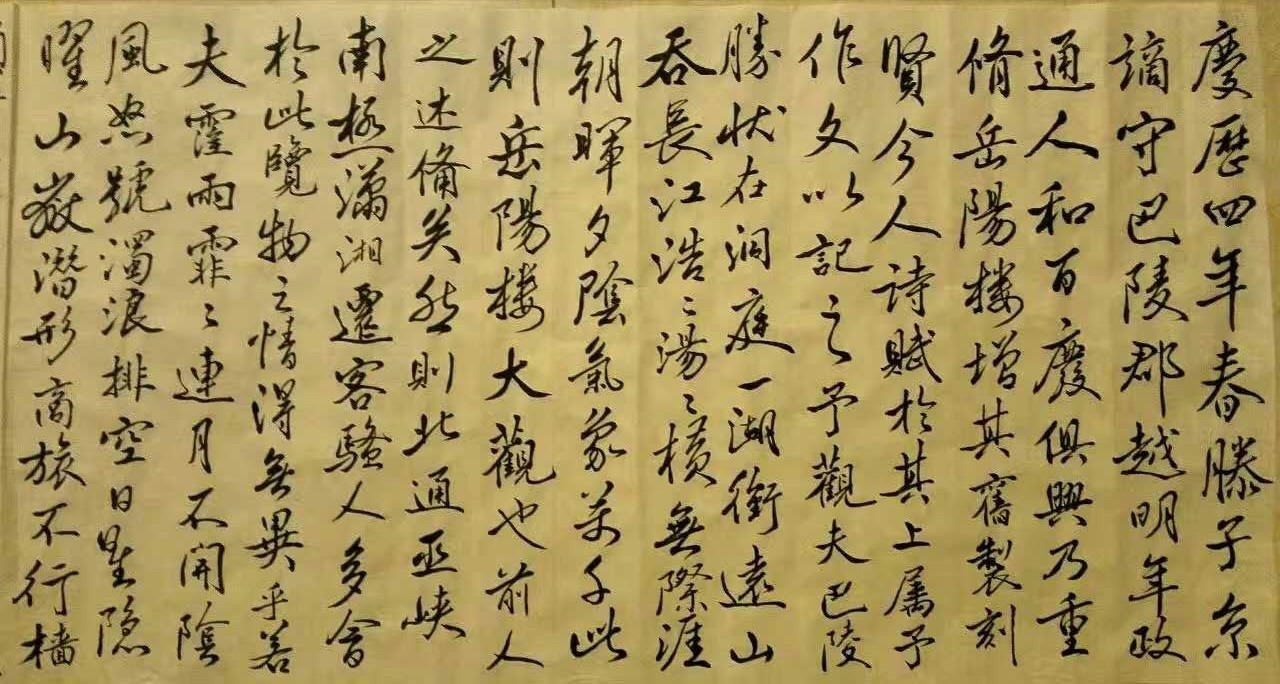 慶歷四年春滕子京
謫守巴陵郡越明年政
通人和百廢俱興乃重
脩岳陽樓增其舊製刻
賢今人詩賦於其上属予
作文以記之予觀夫巴陵
勝狀在洞庭一湖銜遠山
吞長江浩〻湯〻橫無際涯
朝暉夕陰氣象萬千此
則岳陽樓大觀也前人
之述備矣然則北通巫峽
南極瀟湘遷客騷人多會
於此覽物之情得無異乎若
夫霪雨霏〻連月不開陰
風怒號濁浪排空日星隐
曜山嶽潛形商旅不行檣